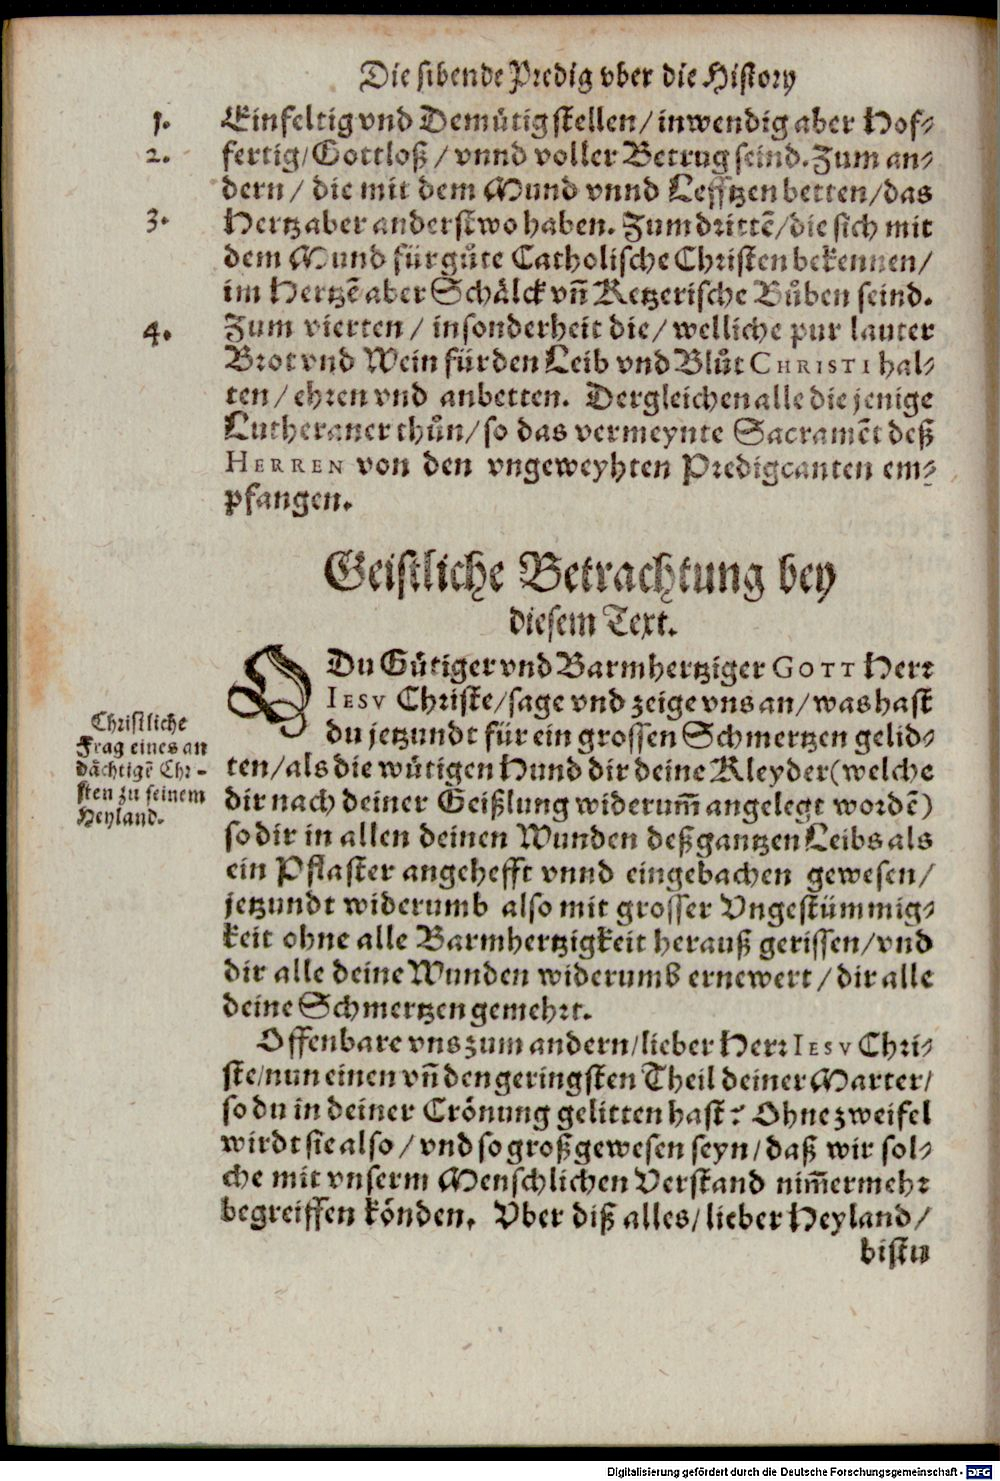 Die sibende Predig vber die History
1. Einfeltig vnd Demuͤtig stellen/ inwendig aber Hof-
2. fertig/ Gottloß/ vnnd voller Betrug seind. Zum an-
dern/ die mit dem Mund vnnd Lefftzen betten/ das
3. Hertz aber anderstwo haben. Zum drittẽ/ die sich mit
dem Mund fuͤr guͦte Catholische Christen bekennen/
im Hertzẽ aber Schaͤlck vñ Ketzerische Buͦben seind.
4. Zum vierten/ insonderheit die/ welliche pur lauter
Brot vnd Wein für den Leib vnd Bluͦt CHRISTI hal-
ten/ ehren vnd anbetten. Dergleichen alle die jenige
Lutheraner thuͦn/ so das vermeynte Sacramẽt deß
HERREN von den vngeweyhten Predigcanten em-
pfangen.
Geistliche Betrachtung bey
diesem Text.
O Du Guͤtiger vnd Barmhertziger GOTT Herr
IESV Christe/ sage vnd zeige vns an/ was hast
du jetzundt für ein grossen Schmertzen gelid-
ten/ als die wuͤtigen Hund dir deine Kleyder (welche
dir nach deiner Geißlung widerum̃ angelegt wordẽ)
so dir in allen deinen Wunden deß gantzen Leibs als
ein Pflaster angehefft vnnd eingebachen gewesen/
jetzundt widerumb also mit grosser Vngestümmig-
keit ohne alle Barmhertzigkeit herauß gerissen/ vnd
dir alle deine Wunden widerumb ernewert/ dir alle
deine Schmertzen gemehrt.
Christliche
Frag eines an
daͤchtigẽ Chri-
sten zu seinem
Heyland.
Offenbare vns zum andern/ lieber Herr IESV Chri-
ste/ nun einen vñ den geringsten Theil deiner Marter/
so du in deiner Croͤnung gelitten hast? Ohne zweifel
wirdt sie also/ vnd so groß gewesen seyn/ daß wir sol-
che mit vnserm Menschlichen Verstand nim̃ermehr
begreiffen koͤnden. Vber diß alles/ lieber Heyland/
bistu
Digitalisierung gefördert durch die Deutsche Forschungsgemeinschaft - DFG